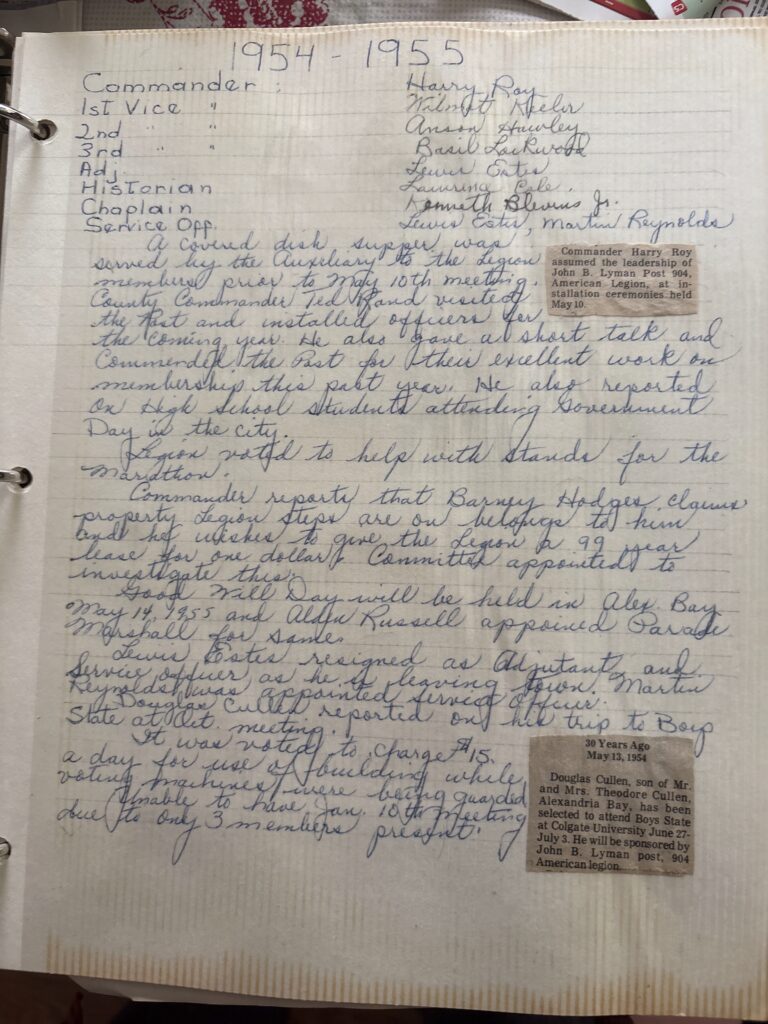 1954 - 1955
Commander : Harry Roy
1st Vice " Wilmot Keeler
2nd " " Anson Hawley
3rd " " Basil Lockwood
Adj. Lewis Estes
Historian Lawrence Cole.
Chaplain Kenneth Blevins Jr.
Service Off. Lewis Estes, Martin Reynolds
A covered dish supper was
served by the Auxiliary to the Legion
members prior to May 10th meeting.
County Commander Ted Rand visited
the Post and installed officers for
the coming year. He also gave a short talk and
Commended the Post for their excellent work on
membership this past year. He also reported
on High School students attending Government
Day in the city.
Legion voted to help with stands for the
Marathon.
Commander reports that Barney Hodges claims
property Legion steps are on belongs to him
and he wishes to give the Legion a 99 year
lease for one dollar. Committee appointed to
investigate this.
Good Will Day will be held in Alex. Bay
May 14, 1955 and Alden Russell appoined Parade
Marshall for same.
Lewis Estes resigned as Adjutant and
Service officer as he is leaving town. Martin
Reynolds was appointed Service Officer.
Douglas Cullen reported on his trip to Boys
State at Oct. meeting.
It was voted to charge $15.
a day for use of building while
voting machines were being guarded.
Unable to have Jan. 10th meeting
due to only 3 members present.
Commander Harry Roy
assumed the leadership of
John B. Lyman Post 904,
American Legion, at in-
stallation ceremonies held
May 10.
30 Years Ago
May 13, 1954
Douglas Cullen, son of Mr.
and Mrs. Theodore Cullen,
Alexandria Bay, has been
selected to attend Boys State
at Colgate University June 27-
July 3. He will be sponsored by
John B. Lyman post, 904
American legion.....